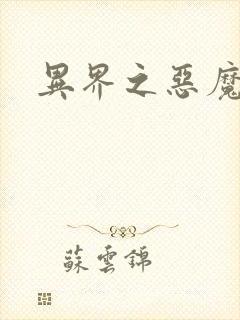 異界之惡魔
蘇雲錦